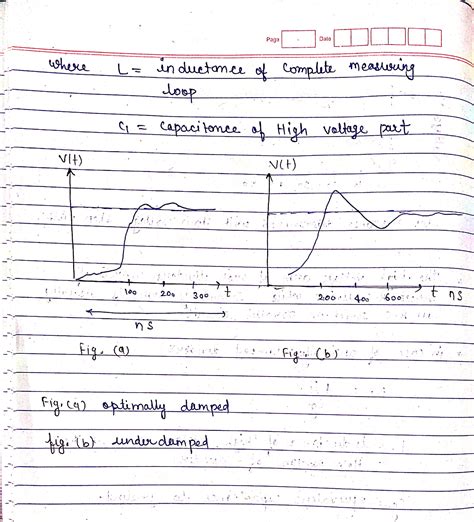 Page Date
where L = inductance of complete measuring
loop
C1 = Capacitance of High voltage part
V(t) V(t)
100 200 300 t 200 400 600 t ns
ns
Fig. (a) Fig. (b)
Fig. (a) optimally damped
fig. (b) underdamped